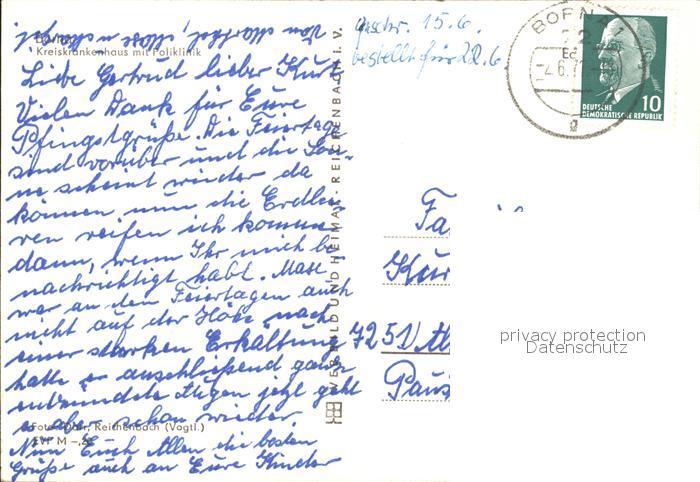 Von Markel, Max u. Margel.
Borna
Kreiskrankenhaus mit Poliklinik
Liebe Gertrud lieber Kurt
Vielen Dank für Eure
Pfingstgrüße. Die Feiertage
sind vorüber und die Son-
ne scheint wieder da
können nun die Erdbee-
ren reifen ich komme
dann, wenn Ihr mich be-
nachrichtigt habt. Max
war an den Feiertagen auch
nicht auf der Höhe nach
einer starken Erkältung
hatte er anschließend ganz
entzündete Augen jetzt geht
es aber schon wieder.
Nun Euch Allen die besten
Grüße auch an Eure Kinder
Foto: Darr, Reichenbach (Vogtl.)
VERLAG BILD UND HEIMAT · REICHENBACH I. V.
geschr. 15.6.
bestellt für 22.6.
BORNA 1
DEUTSCHE
DEMOKRATISCHE REPUBLIK
10
Fa
Kur
7251
Paus
privacy protection
Datenschutz